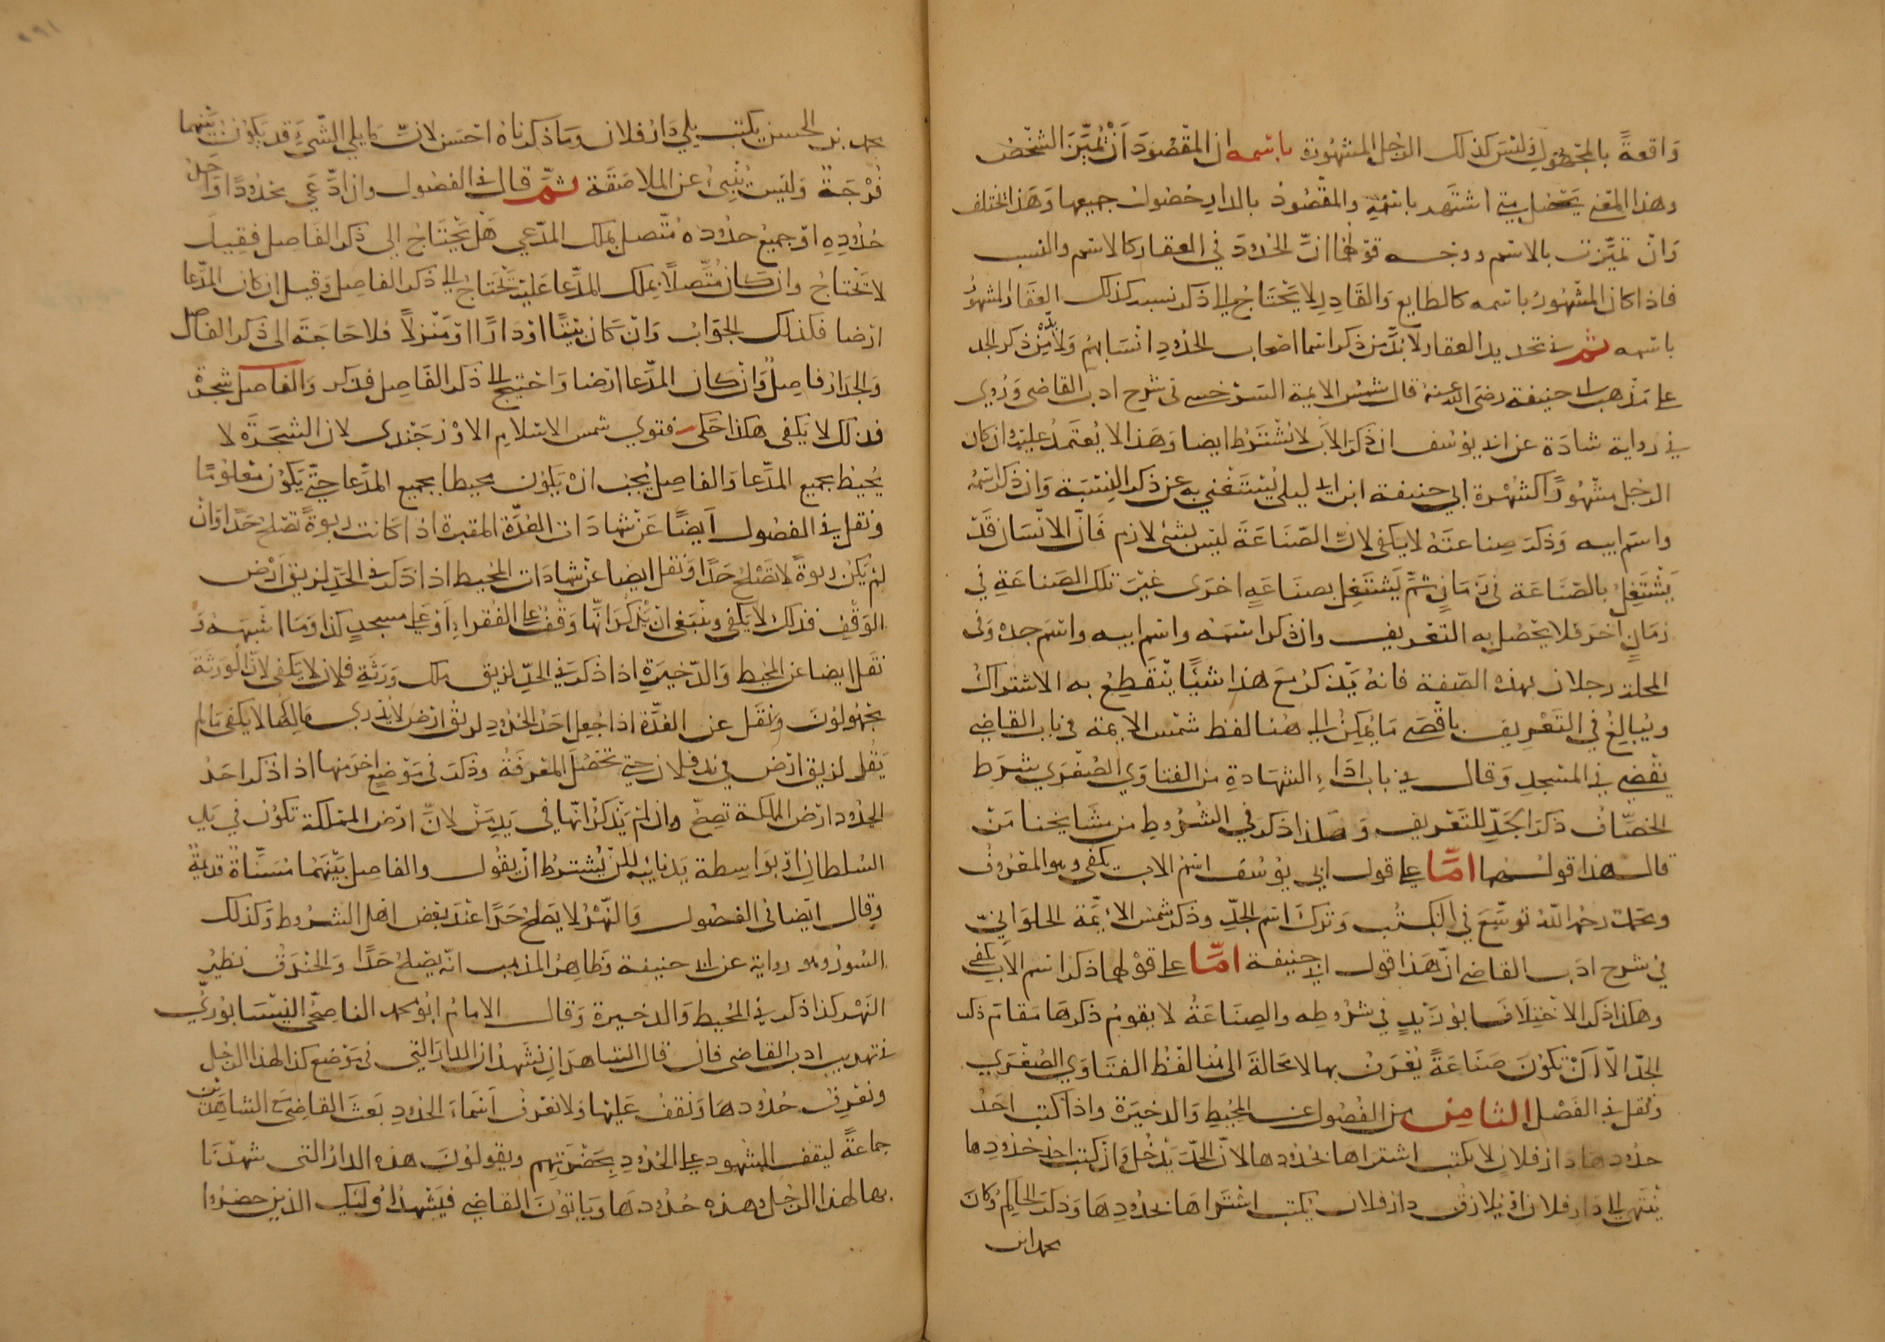 واقعةً بالمحظور وليس كذلك الرجل المشهورة باسمه ان المقصود أنْ تُميَّزَ الشخص
وهذا المعنى يحصل متى اشتهر باسمه والمقصود بالدار حصول جميعها وهذا يختلف
وان تميّزت بالاسم ووجه قولهما انّ الحدودَ في العقار كالاسم والنسب
فاذا كان المشهورُ باسمه كالطايع والقادرِ لا يَحْتَاجُ الى ذكر نسبه كذلك العقار المشهورُ
باسمه ثم في تحديد العقار لا بدَّ من ذكر اسما اصحاب الحدودِ انسابهم ولا بُدّ من ذكر الجد
على مذهب ابى حنيفة رضى الله عنه قال شمس الايمة السرخسى في شرح ادب القاضى ورُوِي
في رواية شاذة عن ابى يوسف ان ذكر الاب لا يشترط ايضا وهذا لا يُعتَمدُ عليه وان كان
الرجل مشهورًا كشهرة ابي حنيفة ابن ابى ليلى يُستَغني به عن ذكر النِسْبَة وان ذكر اسمهُ
واسم ابيه وذكر صناعتَهُ لا يكفى لانّ الصّنَاعَةَ ليس بشئ لازم فانّ الانسان قد
يَشْتَغِلُ بالصّنَاعَة في زَمَانٍ ثمَّ يَشتَغِل بصناعَةٍ اخرَى غيْرَ تلك الصناعَةِ في
زمَانٍ آخرَ فلا يحصل به التعريف وان ذكر اسمَهُ واسم ابيه واسم جده وفى
المحلة رجلان بهذه الصّفة فانهُ يَذكرُ مع هذا شيئًا ينقطِعُ به الاشتراكُ
ويُبالِغُ في التعْرِيف باقصى مَا يُمكِنُ الى هُنا لفظ شمس الايمة في باب القاضى
يقضي في المسجدِ وقال في باب ادَاءِ الشهادةِ من الفتاوَي الصُغرَي شرَط
الخصّاف ذكرَ الجَدِّ للتَعْريف وهكذا ذكر في الشرُوطِ من مشَايخنا مَنْ
قال هذا قولهما امّا على قول ابي يوسف اسم الاب يكفى وهو المعروف
ومحمد رحمه اللهُ توسّعَ في الكتُب وتركَ اسم الجدّ وذكر شمس الائمَّة الحلوانِيّ
في شرح ادَب القاضى انّ هَذا قول ابى حنيفة امّا على قولهما ذكر اسم الاب يكفى
وهكذا ذكر الاختِلاف ابُو زيْدٍ في شرُوطه والصِنَاعَةُ لا يقومُ ذكرهَا مَقامَ ذكر
الجدّ الّا أنْ تكوُنَ صَناعَةً يُعْرَفُ بها لا محالةَ الى هُنا لفْظ الفتَاوَي الصُغرَي
ونقل في الفَصْلِ الثامن من الفُصُول عن المحيْطِ والذخيرَة واذا كتب احَدُ
حدودها دار فلانٍ لا يكتب اشتراها بحدودها لانّ الحدّ يَدْخُلُ وان كتب احد حدُودِها
يَنتهي الى دار فلان او يُلازق دار فلان يكتب اشتراها بحدودِها وذكر الحاكم وكان
محمد ابن
محمد بن الحسن يكتب يلي دَار فلان وما ذكرناهُ احسَن لانّ ما يلي الشّيءَ قد يكوُن بينهما
فُرْجَةٌ وليس يُنْبِئُ عن الملاصَقَة ثمّ قال في الفصُول وان ادَّعَي محْدُودًا وَاحدُ
حُدُودِهِ اوْ جميعُ حدُودهُ مُتّصل بملك المدّعي هَل يحْتَاجُ الى ذكر الفَاصِل فقِيل
لا يَحْتَاجُ وان كَان مُتّصِلًا بملك المدَّعا عليْه يَحْتَاجُ الى ذكر الفاصِل وقيل ان كان المدّعا
ارْضا فكذلك الجوَابُ وَانْ كَان بيْتًا اوْ دَارًا اوْ مَنزلاً فلا حَاجَةَ الى ذكر الفاصل
والجدَار فاصِلٌ وَان كان المدَّعا ارْضا واحْتيجَ الى ذكر الفَاصِل فذكر والفاصل شجرَةٌ
فذلك لا يكفى هكذا حَكى فتوي شمس الاسْلاِم الاوْزجَنْدى لان الشجَرَةَ لا
يُحيْط بجميع المدَّعا والفاصِل يجبُ انْ يكوُن محيطا بجميع المدَّعا حتّى يكوُن معْلومًا
ونقل في الفصُول أيضًا عن شهادَات العُدَّة المقبرة اذا كانت ربوةً تصْلحُ حَدًّا وانْ
لمْ يكنْ ربوةً لا تَصْلحُ حَدًّا ونقل ايضا عن شهادَات المحيط اذا ذكر في الحَدّ لزيق اَرْض
الوقْفِ فذلك لا يكفى وينبَغى انْ يَذكرَ انّها وقْفٌ على الفقراءِ أوْ على مسجدٍ كذا ومَا اشبهَهُ و
نقل ايضا عن المحيط والذّخيرَةِ اذا ذكر في الحَدّ لزيق ملك وَرَثَةِ فلان لا يكفى لانّ الورَثَةَ
مجْهوُلوُنَ ونقل عن العُدَّة اذا جُعِل احَدُ الحُدُودِ لزيق ارْض لا يدْرى مالكُها لا يكفى مَا لم
يَقُل لزيق ارْض في يد فلان حتّى تحصُل المعْرفَةُ وذكر في مَوْضِعٍ اخر منها اذا ذكر احَدُ
الحدُود ارْض المملكة تصِحّ وان لم يَذكرْ انّها في يَدِ مَنْ لانّ ارْض المملكة تكوُن في يَد
السُلطانِ اوْ بوَاسِطة يَد نَائِبه لكن يُشترط انْ يقوُل والفاصِل بيْنَهُمَا مُسَنّاةٌ قديمَةٌ
وقال ايْضا في الفصُول والنّهْرُ لا يَصلحُ حَدًّا عنْدَ بعْض اهل الشرُوط وكذلك
السُورُ وهو رواية عن ابى حنيفة وظاهِرُ المذهب انّه يصْلحُ حَدًّا والخنْدَقُ نظيرُ
النّهْر كذا ذكر في المحُيط والذخيرة وقال الامامُ ابُو محمد الناصحيّ النيْسَابوُريّ
في تهذيب ادب القاضى فان قال الشاهدَانِ نَشْهدُ ان الدارَ التي في مَوْضع كذا لهذا الرجُل
ونعرفُ حُدُودهَا ونقفُ عليْها ولا نعْرفُ اسْمَاءَ الحدُودِ بَعثَ القاضِي مَع الشاهِدَيْن
جماعَةً ليقفَ الشهود على الحُدُودِ بحَضْرَتِهِم ويقوُلوُنَ هذه الدارُ التي شهِدْنَا
بها لهذا الرجُل وهذه حُدُودهَا ويَاتوُنَ القاضِي فيَشْهدُ اولئِك الذين حضرُوا